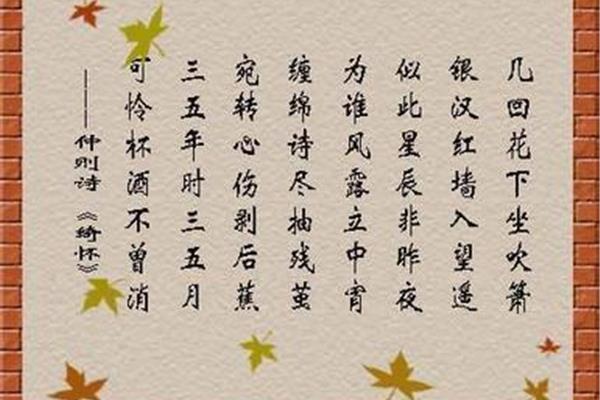 几回花下坐吹箫
银汉红墙入望遥
似此星辰非昨夜
为谁风露立中宵
缠绵诗尽抽残茧
宛转心伤剥后蕉
三五年时三五月
可怜杯酒不曾消
——仲则诗《绮怀》